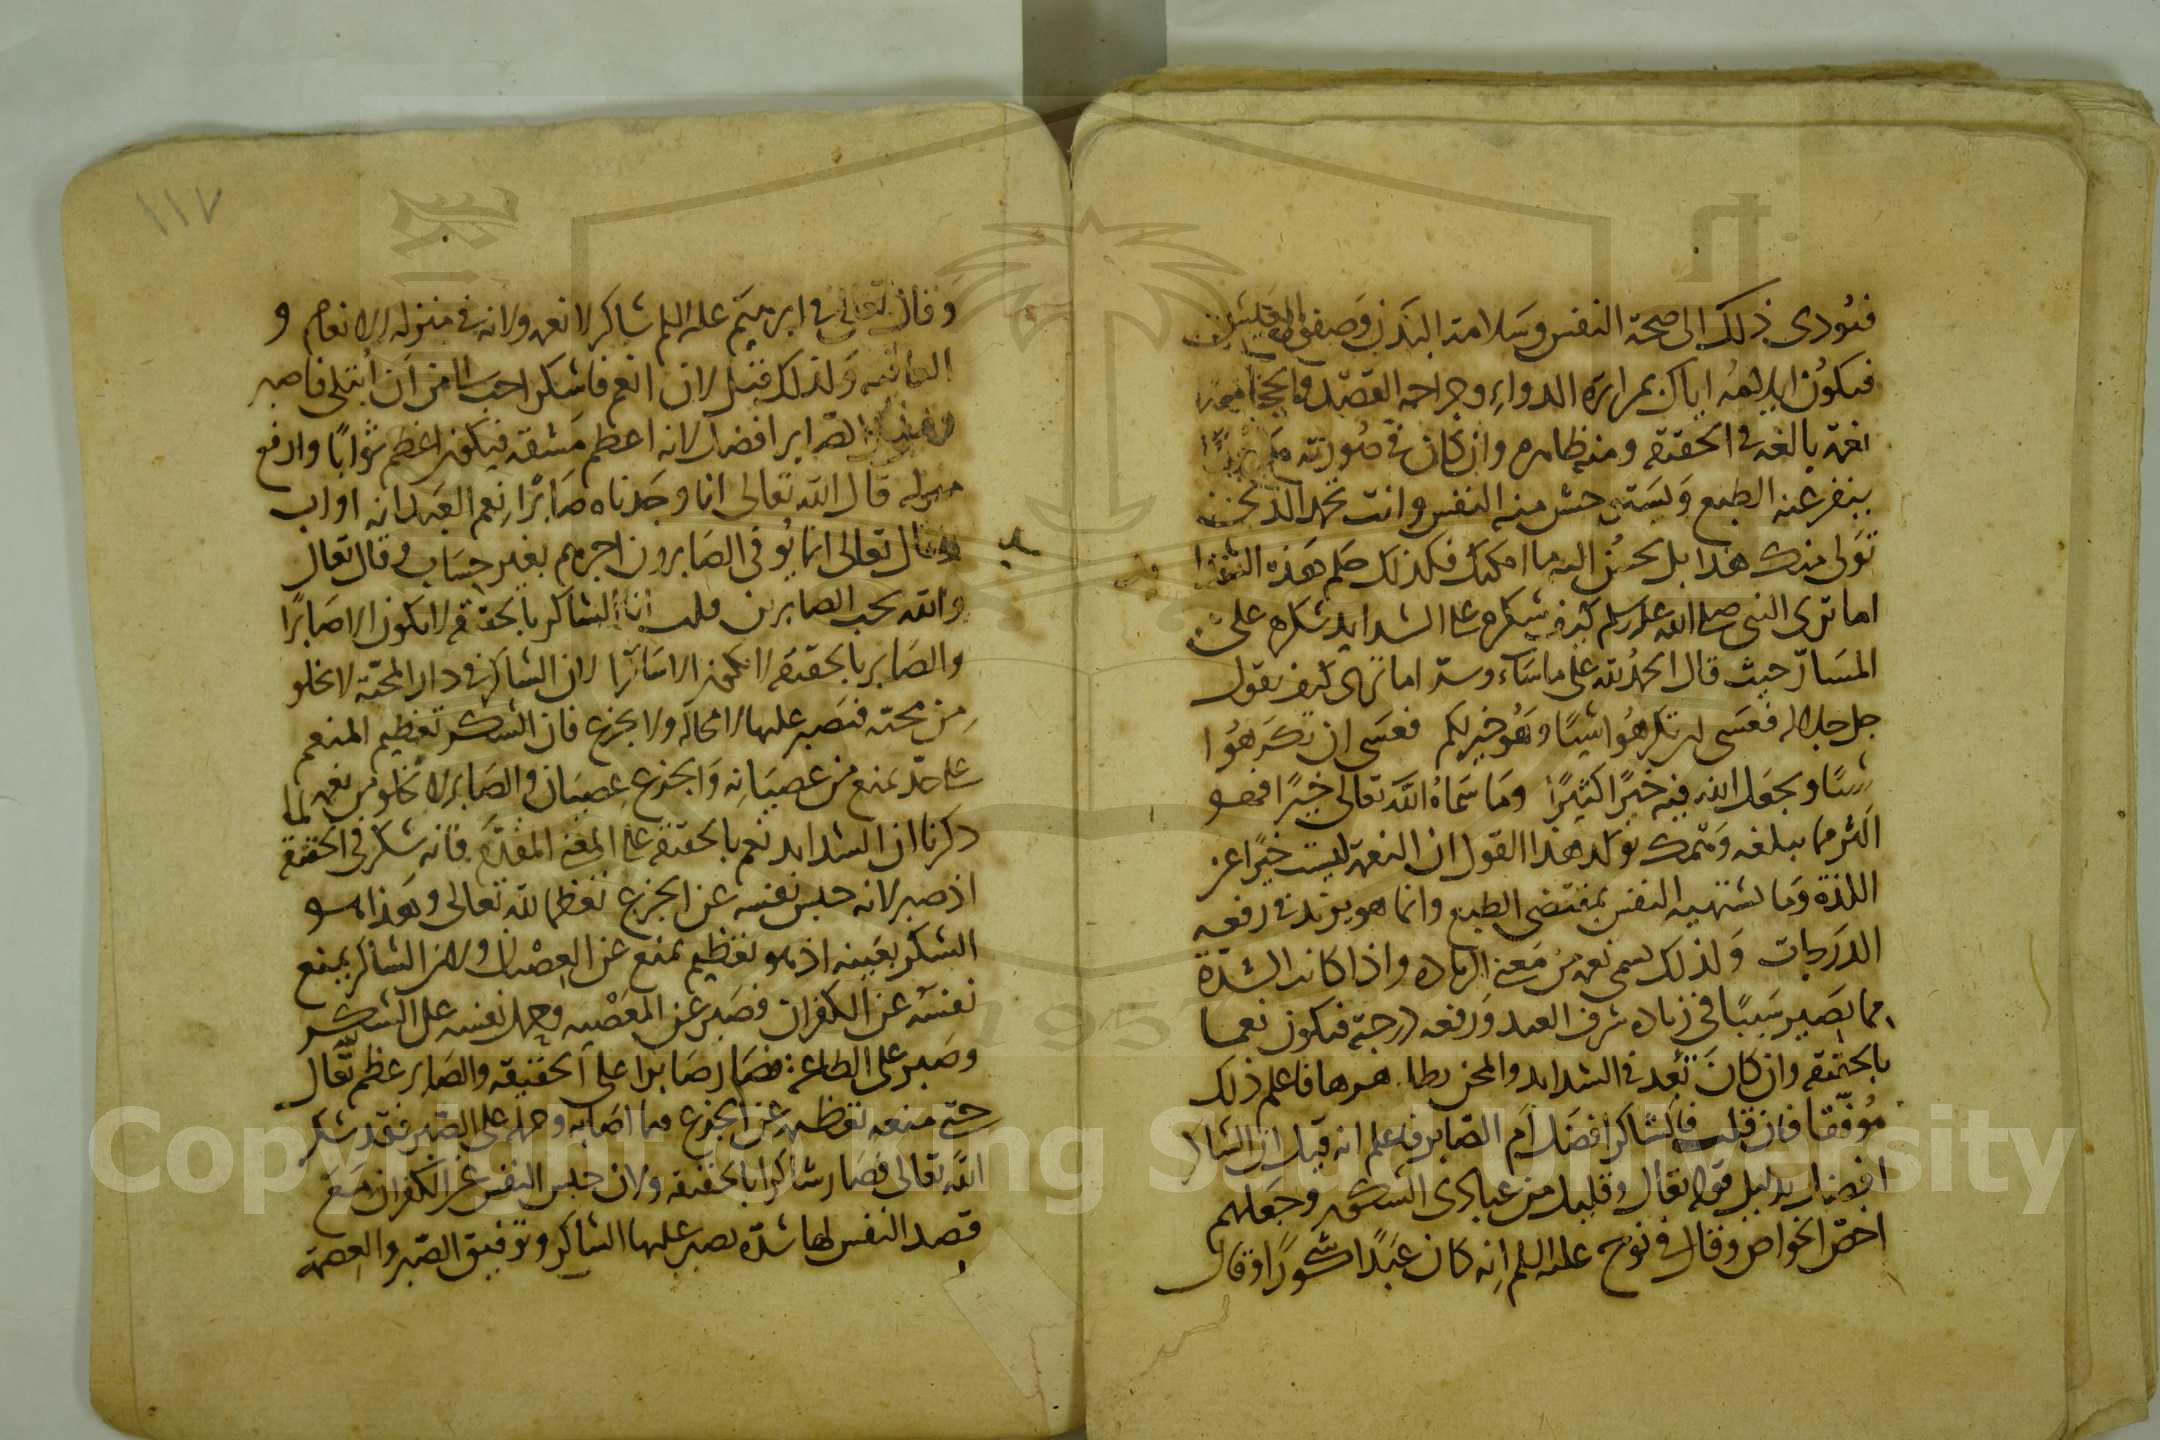 فيؤدى ذلك الى صحة النفس وسلامة البدن وصفو العيش
فيكون ايلامه اياك بمرارة الدواء وجراحة الفصد والحجامة
نعمة بالغة في الحقيقة ومنة ظاهرة وان كان في صورته مكروها
ينفر عنه الطبع ويستوحش منه النفس وانت تحمد الذي
تولى منك هذا بل تحسن اليه ما امكنك فكذلك حكم هذه الشدائد
اما ترى النبي صلى الله عليه وسلم كيف شكره على الشدايد شكره على
المسار حيث قال الحمد لله على ما ساء وسر اما ترى كيف يقول
جل جلاله فعسى ان تكرهوا شيئا وهو خير لكم فعسى ان تكرهوا
شيئا ويجعل الله فيه خيرا كثيرا وما سماه الله تعالى خيرا فهو
اكثر مما يبلغه وهمك يوكد هذا القول ان النعمة ليست خيرا عن
اللذة وما تشتهيه النفس بمقتضى الطبع وانما هو يزيد في رفعه
الدرجات ولذلك تسمى نعمة من معنى الزيادة واذا كانت الشدة
مما يصير سببا في زيادة شرف العبد ورفعه درجة فيكون نعما
بالحقيقة وان كان تعد في الشدايد والمحن بظاهرها فاعلم ذلك
موفقا فان قلت فالشاكر افضل ام الصابر فاعلم انه قيل ان الشاكر
افضل بدليل قوله تعالى وقليل من عبادي الشكور وجعلهم
اخص الخواص وقال في نوح عليه السلم انه كان عبدا شكورا وقال
١١٧
وقال تعالى في ابرهيم عليه السلم شاكرا لانعمه ولانه في منزله الانعام و
العافيه ولذلك قيل لان انعم فاشكر احب الى من ان ابتلى فاصبر
وقيل الصابر افضل لانه اعظم مشقة فيكون اعظم ثوابا وارفع
منزله قال الله تعالى انا وجدناه صابرا نعم العبد انه اواب
وقال تعالى انما يوفى الصابرون اجرهم بغير حساب وقال تعالى
والله يحب الصابرين قلت انا الشاكر بالحقيقه لا يكون الا صابرا
والصابر بالحقيقه لا يكون الا شاكرا لان الشاكر في دار المحنة لا يخلو
من محنة فيصبر عليها لا محالة ولا يجزع فان الشكر تعظيم المنعم
على حد يمنع من عصيانه والجزع عصيان والصابر لا يخلو من نعمه لما
ذكرنا ان الشدايد نعم بالحقيقه على المعنى المقدم فانه شكر في الحقيقة
اذ صبر لانه حبس نفسه عن الجزع تعظيما لله تعالى وهذا هو
الشكر بعينه اذ هو تعظيم يمنع عن العصيان ولان الشاكر يمنع
نفسه عن الكفران فصبر عن المعصيه وحمل نفسه على الشكر
وصبر على الطاعة فصار صابرا على الحقيقه والصابر عظم الله تعالى
حتى منعه تعظيمه عن الجزع فيما اصابه وحمله على الصبر فقد شكر
الله تعالى فصار شاكرا بالحقيقه ولان حبس النفس عن الكفران مع
قصد النفس لها شدة يصبر عليها الشاكر وتوفيق الصبر والعصمة
Copyright © King Saud University
1957